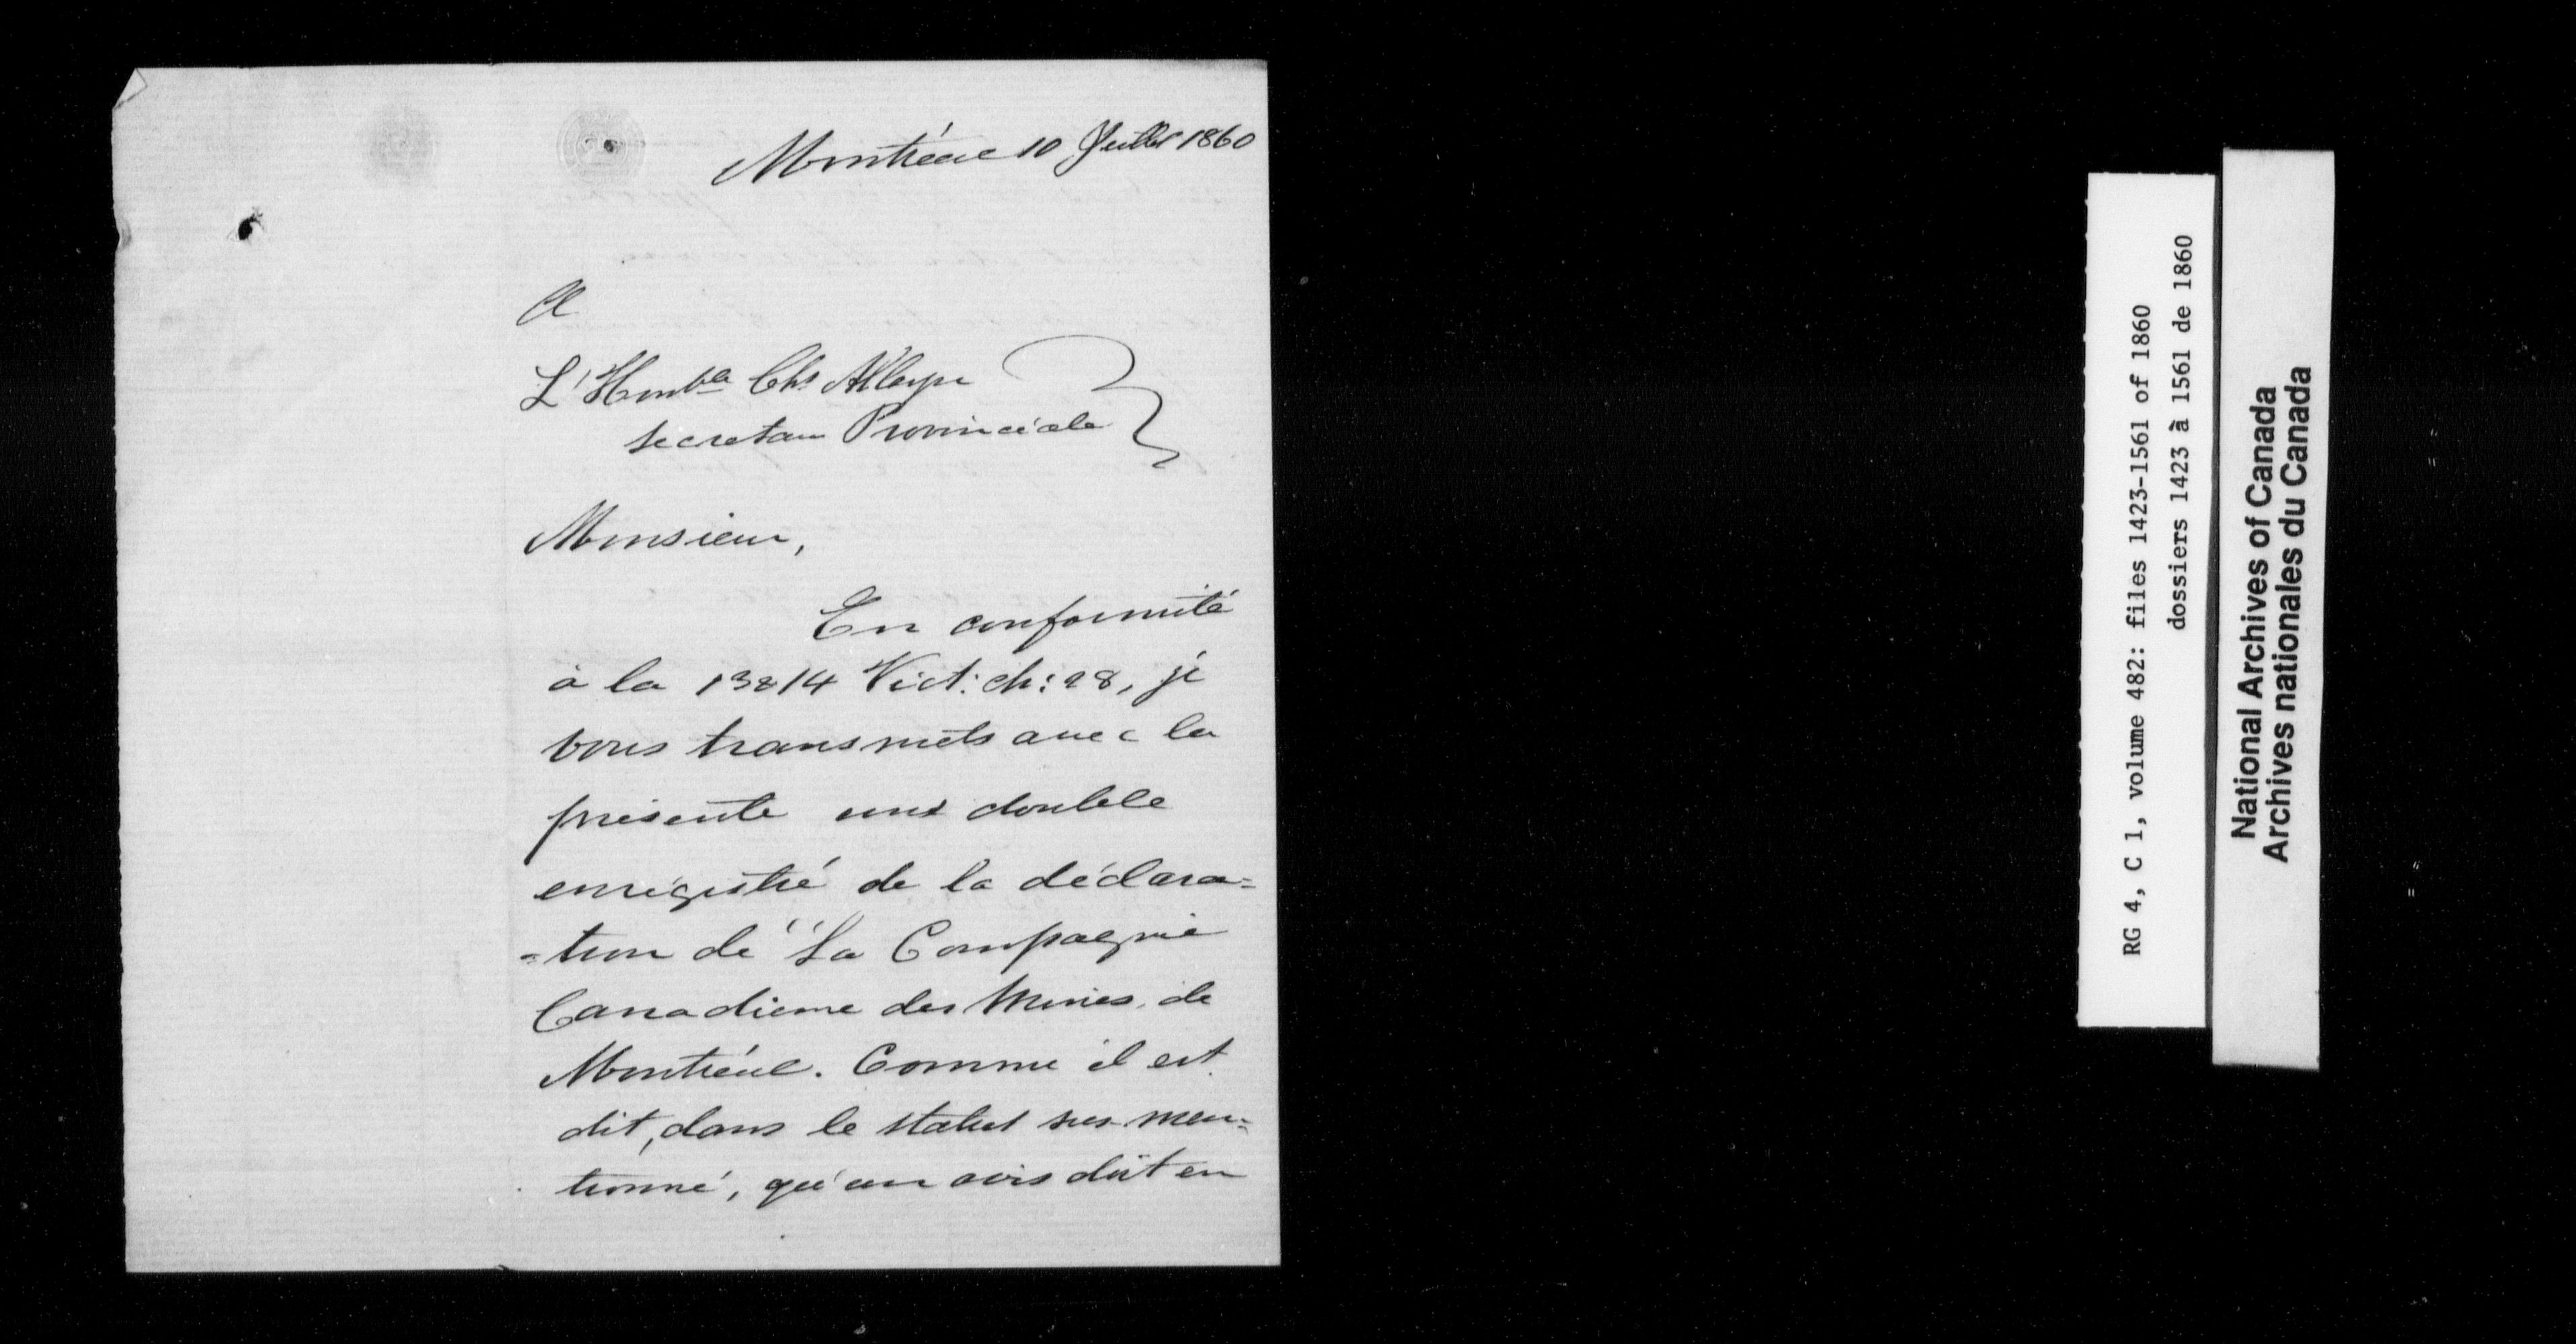 Montréal 10 Juillet 1860
A
L'Honble Chs Alleyn
Secretaire Provinciale
Monsieur,
En conformité
à la 13 & 14 Vict: ch: 28, je
vous transmets avec la
présente une double
enrégistré de la déclara=
=tion de "La Compagnie
Canadienne des Mines de
Montréal. Comme il est
dit, dans le statut sus-men=
tionné, qu'un avis doit en
RG 4, C 1, volume 482: files 1423-1561 of 1860
dossiers 1423 à 1561 de 1860
National Archives of Canada
Archives nationales du Canada